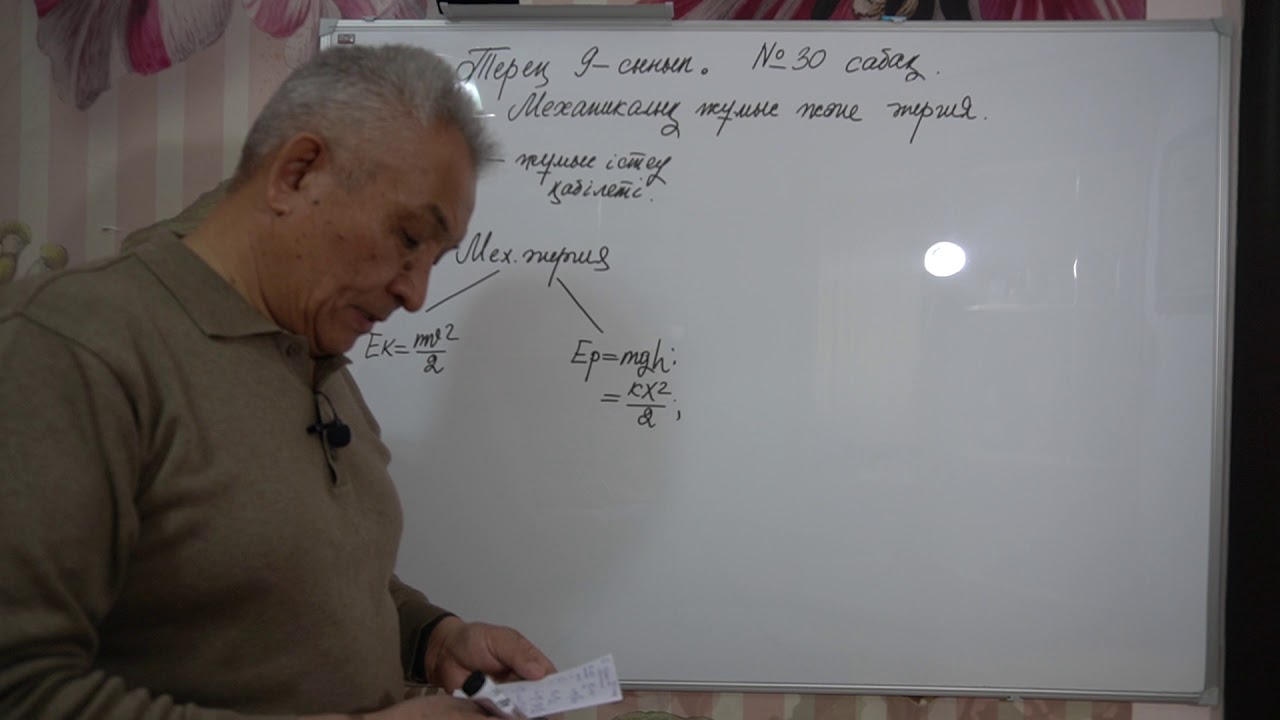 Терең 9-сынып. №30 сабақ.
Механикалық жұмыс және энергия.
– жұмыс істеу
қабілеті.
Мех. энергия
Eк=mv²/2
Ep=mgh;
=kx²/2;